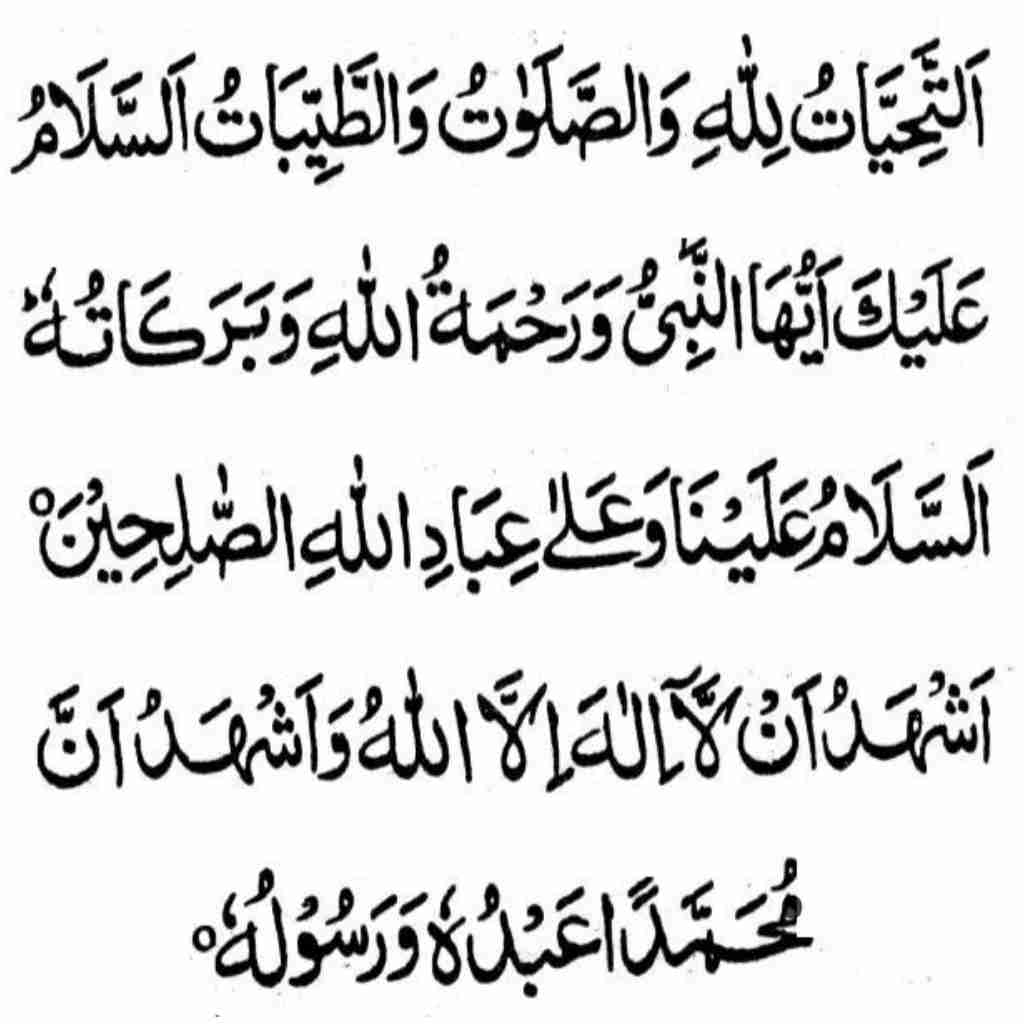 اَلتَّحِيَّاتُ لِلّٰهِ وَالصَّلَوٰتُ وَالطَّيِّبَاتُ اَلسَّلَامُ
عَلَيْكَ اَيُّهَا النَّبِىُّ وَرَحْمَةُ اللّٰهِ وَبَرَكَاتُهٗ ؕ
اَلسَّلَامُ عَلَيْنَا وَعَلٰى عِبَادِ اللّٰهِ الصّٰلِحِيْنَ ۚ
اَشْهَدُ اَنْ لَّآ اِلٰهَ اِلَّا اللّٰهُ وَاَشْهَدُ اَنَّ
مُحَمَّدًا عَبْدُهٗ وَرَسُوْلُهٗ ۚ